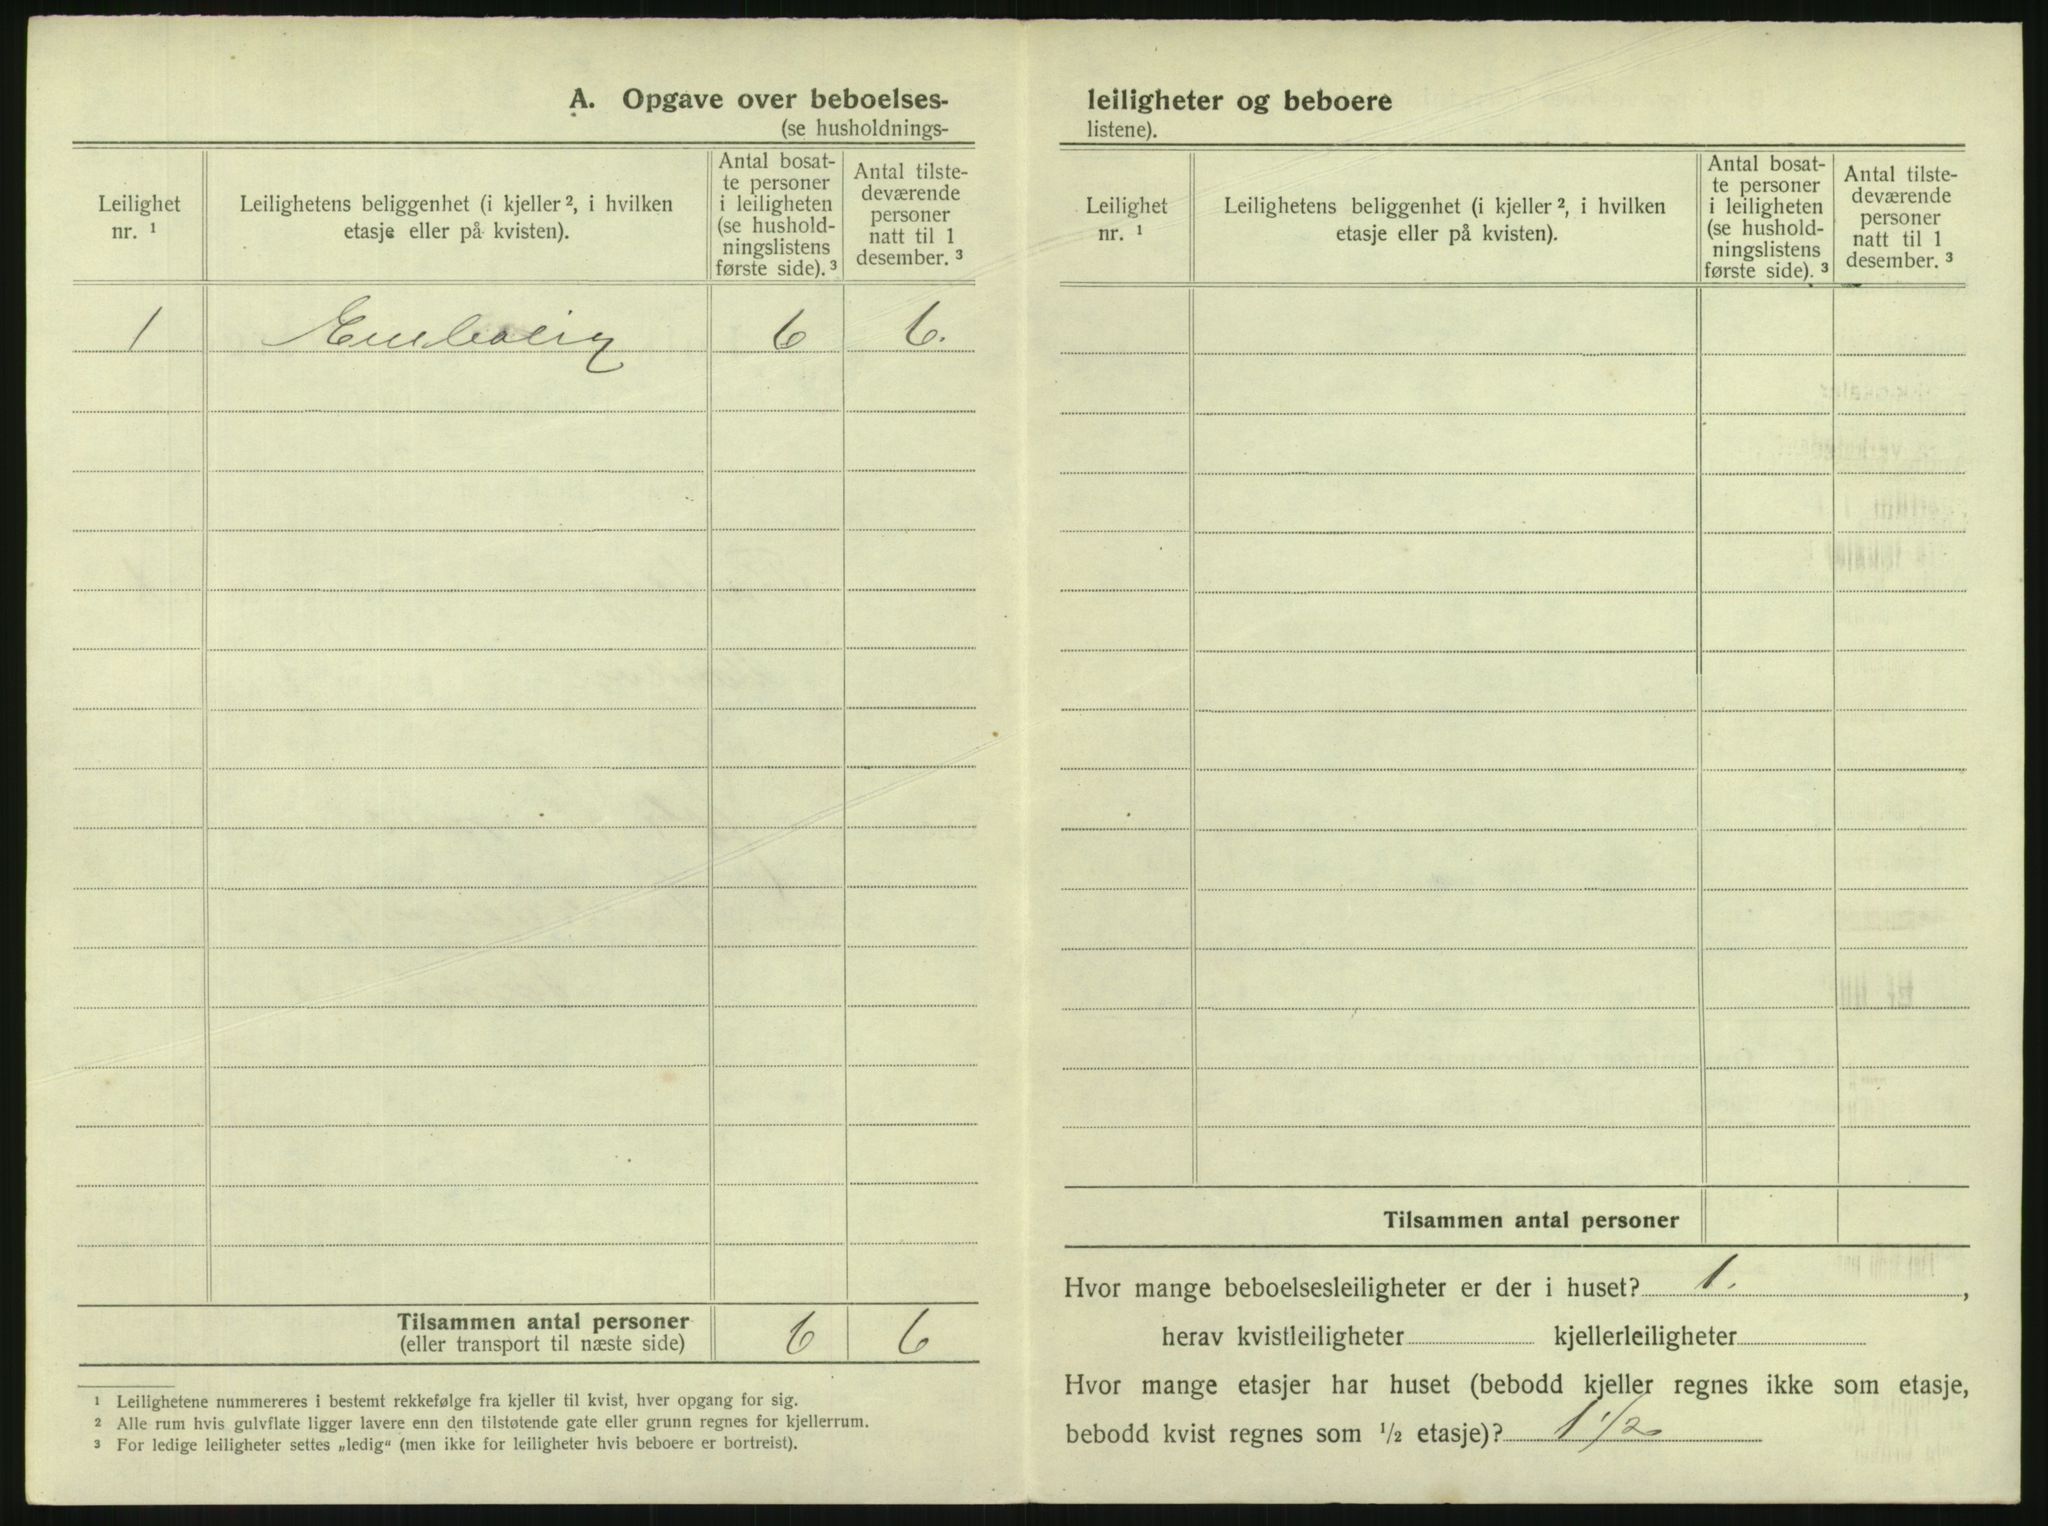 A. Opgave over beboelses-
(se husholdnings-
Leilighet
nr. ¹
Leilighetens beliggenhet (i kjeller ², i hvilken
etasje eller på kvisten).
Antal bosat-
te personer
i leiligheten
(se hushold-
ningslistens
første side). ³
Antal tilste-
deværende
personer
natt til 1
desember. ³
1 Enebolig 6 6.
Tilsammen antal personer
(eller transport til næste side)
6 6
¹ Leilighetene nummereres i bestemt rekkefølge fra kjeller til kvist, hver opgang for sig.
² Alle rum hvis gulvflate ligger lavere enn den tilstøtende gate eller grunn regnes for kjellerrum.
³ For ledige leiligheter settes „ledig“ (men ikke for leiligheter hvis beboere er bortreist).
leiligheter og beboere
listene).
Leilighet
nr. ¹
Leilighetens beliggenhet (i kjeller ², i hvilken
etasje eller på kvisten).
Antal bosat-
te personer
i leiligheten
(se hushold-
ningslistens
første side). ³
Antal tilste-
deværende
personer
natt til 1
desember. ³
Tilsammen antal personer
Hvor mange beboelsesleiligheter er der i huset? 1. ,
herav kvistleiligheter kjellerleiligheter
Hvor mange etasjer har huset (bebodd kjeller regnes ikke som etasje,
bebodd kvist regnes som ½ etasje)? 1 1/2